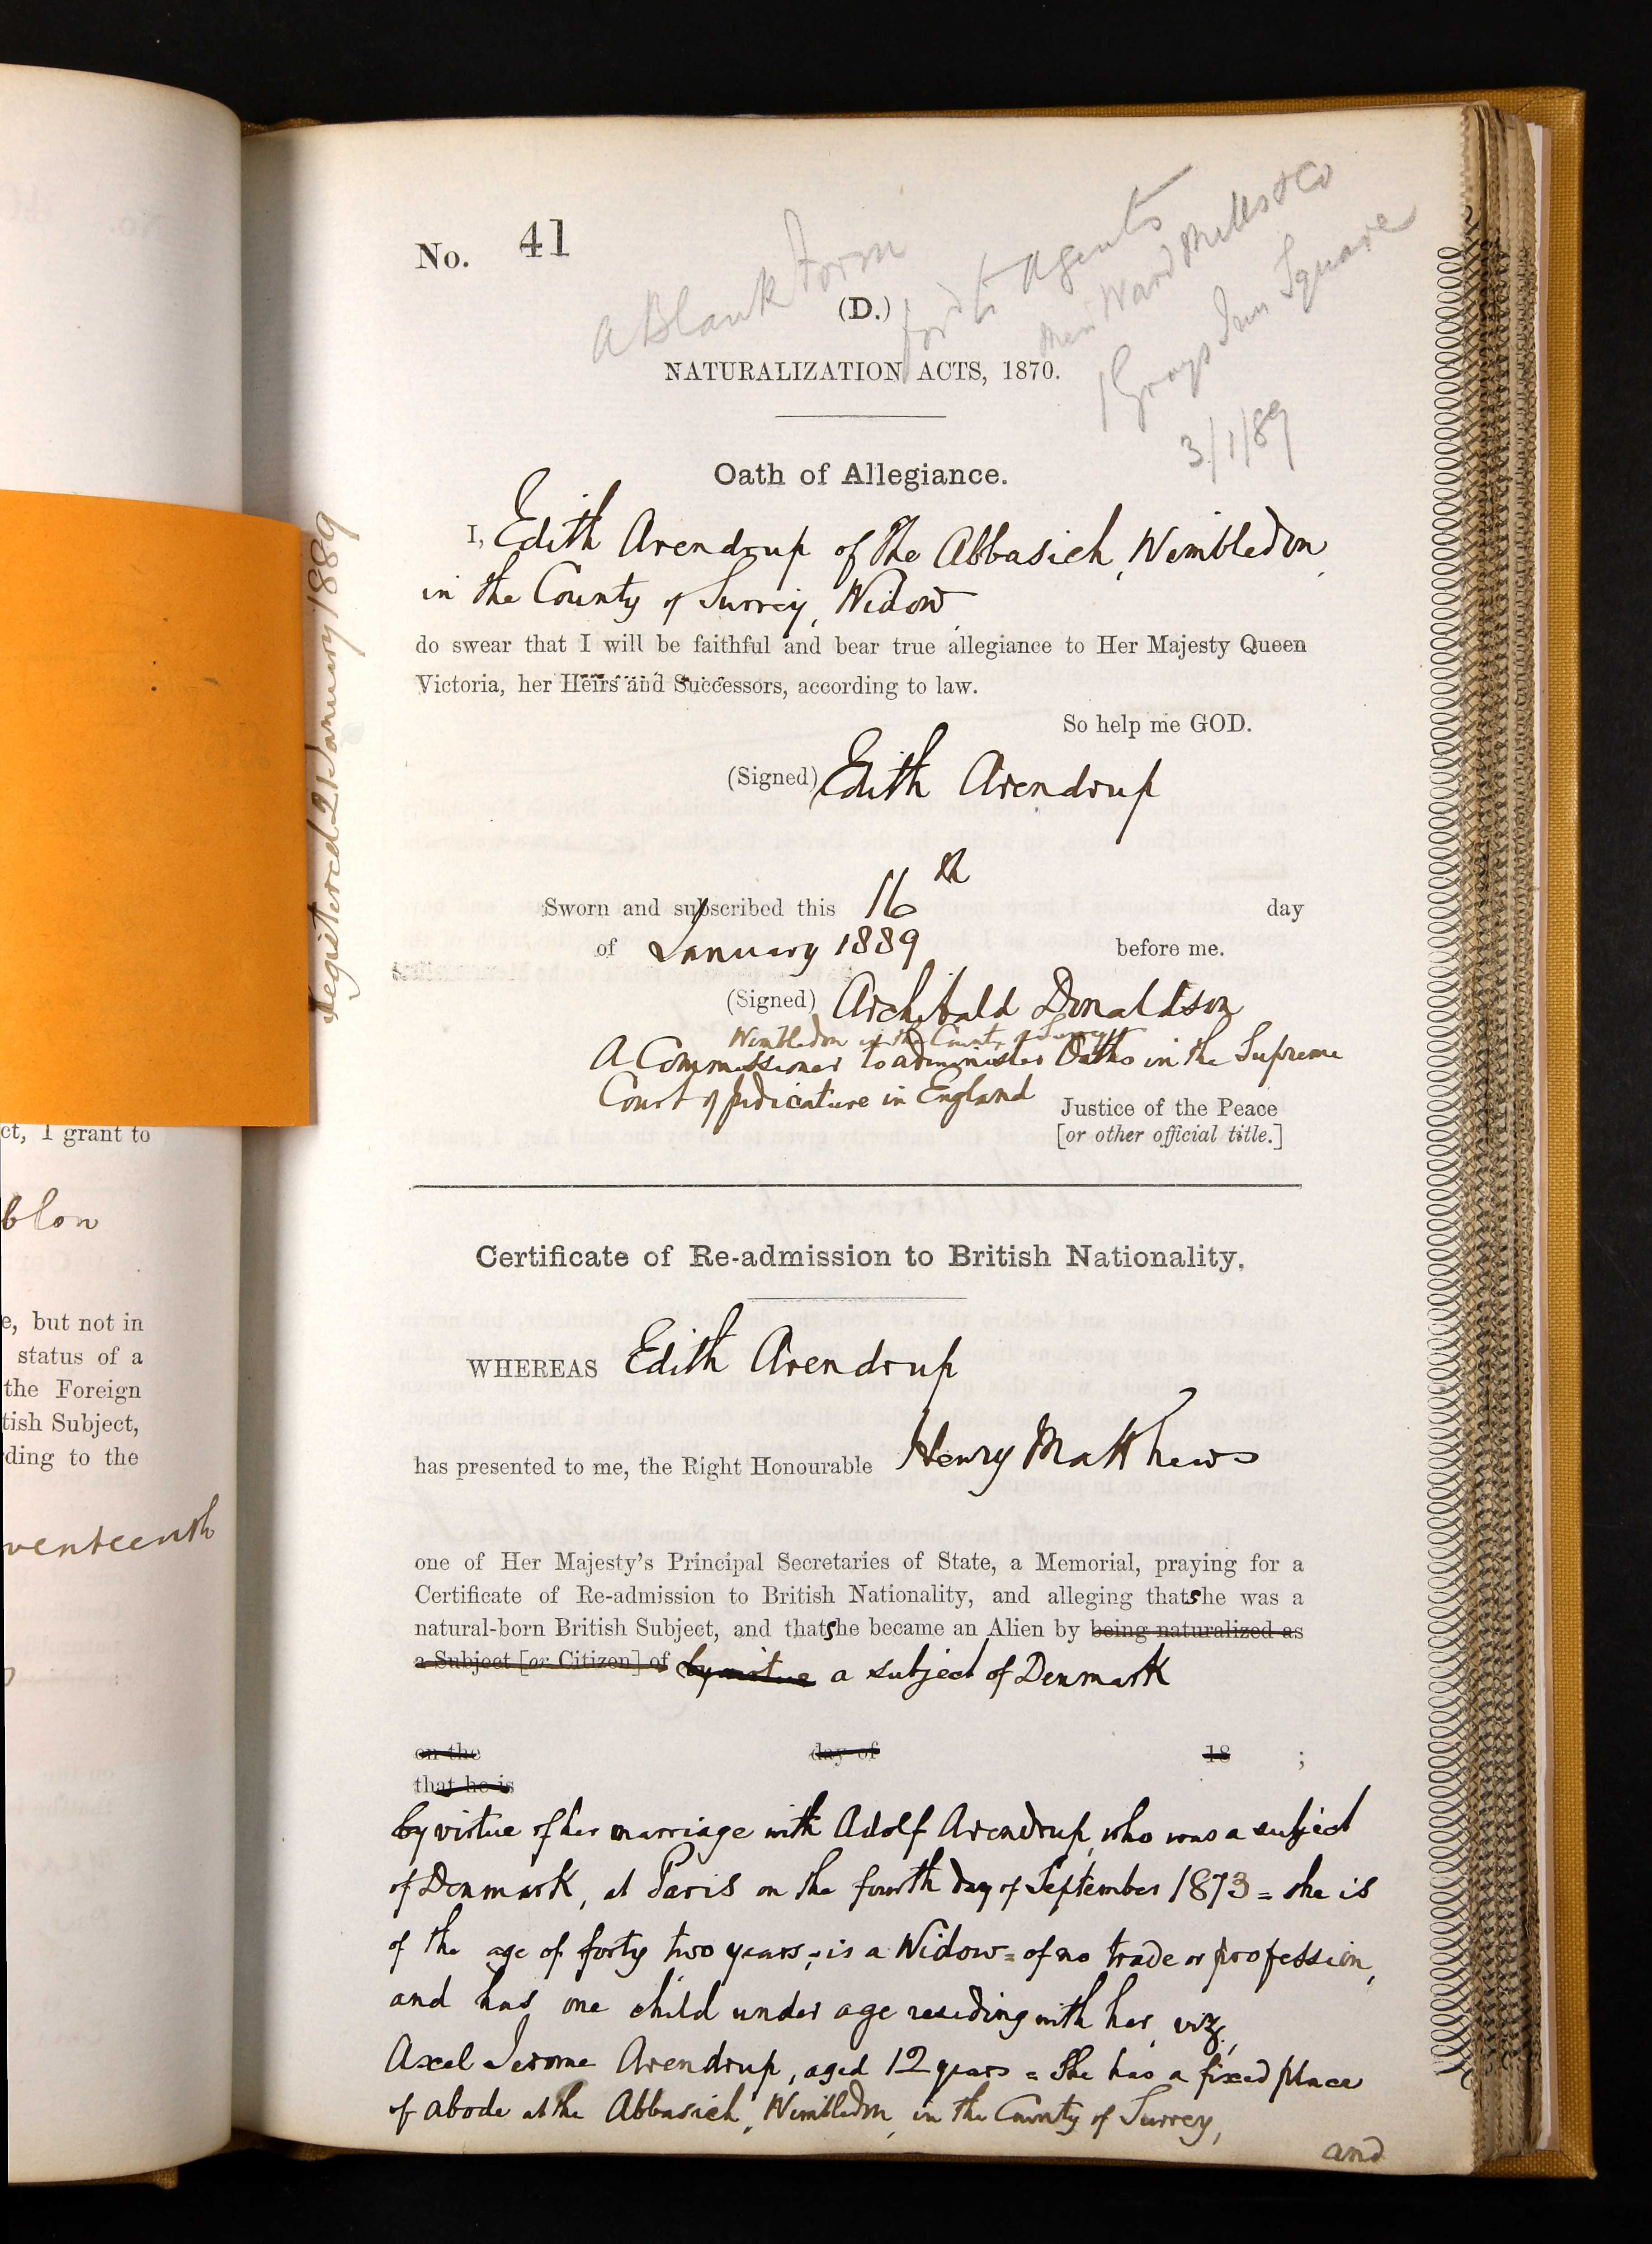 ct, I grant to
blon
e, but not in
status of a
the Foreign
tish Subject,
ding to the
venteenth
Registered 21 January 1889
No. 41
A Blank Form
for to agents
Ward Mills & Co
1 Grays Inn Square
3/1/89
(D.)
NATURALIZATION ACTS, 1870.
Oath of Allegiance.
I, Edith Arendrup of The Abbasieh, Wimbledon,
in the County of Surrey, Widow,
do swear that I will be faithful and bear true allegiance to Her Majesty Queen
Victoria, her Heirs and Successors, according to law.
So help me GOD.
(Signed) Edith Arendrup
Sworn and subscribed this 16th day
of January 1889 before me.
(Signed) Archibald Donaldson
Wimbledon in the County of Surrey
A Commissioner to administer Oaths in the Supreme
Court of Judicature in England
Justice of the Peace
[or other official title.]
Certificate of Re-admission to British Nationality,
WHEREAS Edith Arendrup
has presented to me, the Right Honourable Henry Matthews
one of Her Majesty's Principal Secretaries of State, a Memorial, praying for a
Certificate of Re-admission to British Nationality, and alleging that she was a
natural-born British Subject, and that she became an Alien by being naturalized as
a Subject [or Citizen] of by virtue a subject of Denmark
on the day of 18 ;
that he is
by virtue of her marriage with Adolf Arendrup, who was a subject
of Denmark, at Paris on the fourth day of September 1873 = she is
of the age of forty two years, = is a Widow = of no trade or profession,
and has one child under age residing with her, viz,
Axel Jerome Arendrup, aged 12 years = She has a fixed place
of abode at the Abbasieh, Wimbledon, in the County of Surrey,
and